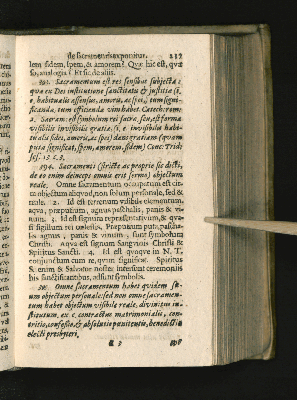 de sacramentis exponitur. 217
lem fidem, spem, & amorem? Quæ hic est, quæ
so, analogia? Et sic de aliis.
393. Sacramentum est res sensibus subjecta:
quæ ex Dei institutione sanctitatis & justitiæ (i,
e, habitualis assensus, amoris, ac spei) tum signi-
ficandæ, tum efficiendæ vim habet. Catech: rom:
2. Sacram: est symbolum rei sacræ, seu, est forma
visibilis invisibilis gratiæ, (i. e invisibilis habi-
tualis fidei, amoris, ac spei) dans gratiam (quam
puta significat, spem, amorem, fidem) Conc: Trid:
sess. 13 c. 3.
394. Sacramenti (stricte ac proprie sic dicti,
de eo enim deinceps omnis erit sermo) objectum
reale. Omne sacramentum occupatum est cir-
ca objectum aliquod, non solum personale, sed &
reale. 2. Id est terrenum visibile elementum,
aqua, præputium, agnus paschalis, panis & vi-
num. 3 Id est signum repræsentativum, & qua-
si sigillum rei cœlestis. Præputium puta, pascha-
lis agnus, panis & vinum, sunt symbolum
Christi. Aqua est signum Sanguinis Christi &
Spiritus Sancti. 4. Id est quoque in N. T.
conjunctum cum re, quam significat. Spiritus
S. enim & Salvator noster intersunt ceremoniis
his sanctificantibus, adsunt symbolis.
395. Omne sacramentum habet quidem su-
um objectum personale: sed non omne sacramen-
tum habet objectum visibile reale, divinitus in-
stitutum. ex. c. contractus matrimonialis, con-
tritio, confessio, & absolutio pœnitentis, benedictio
electi presbyteri,